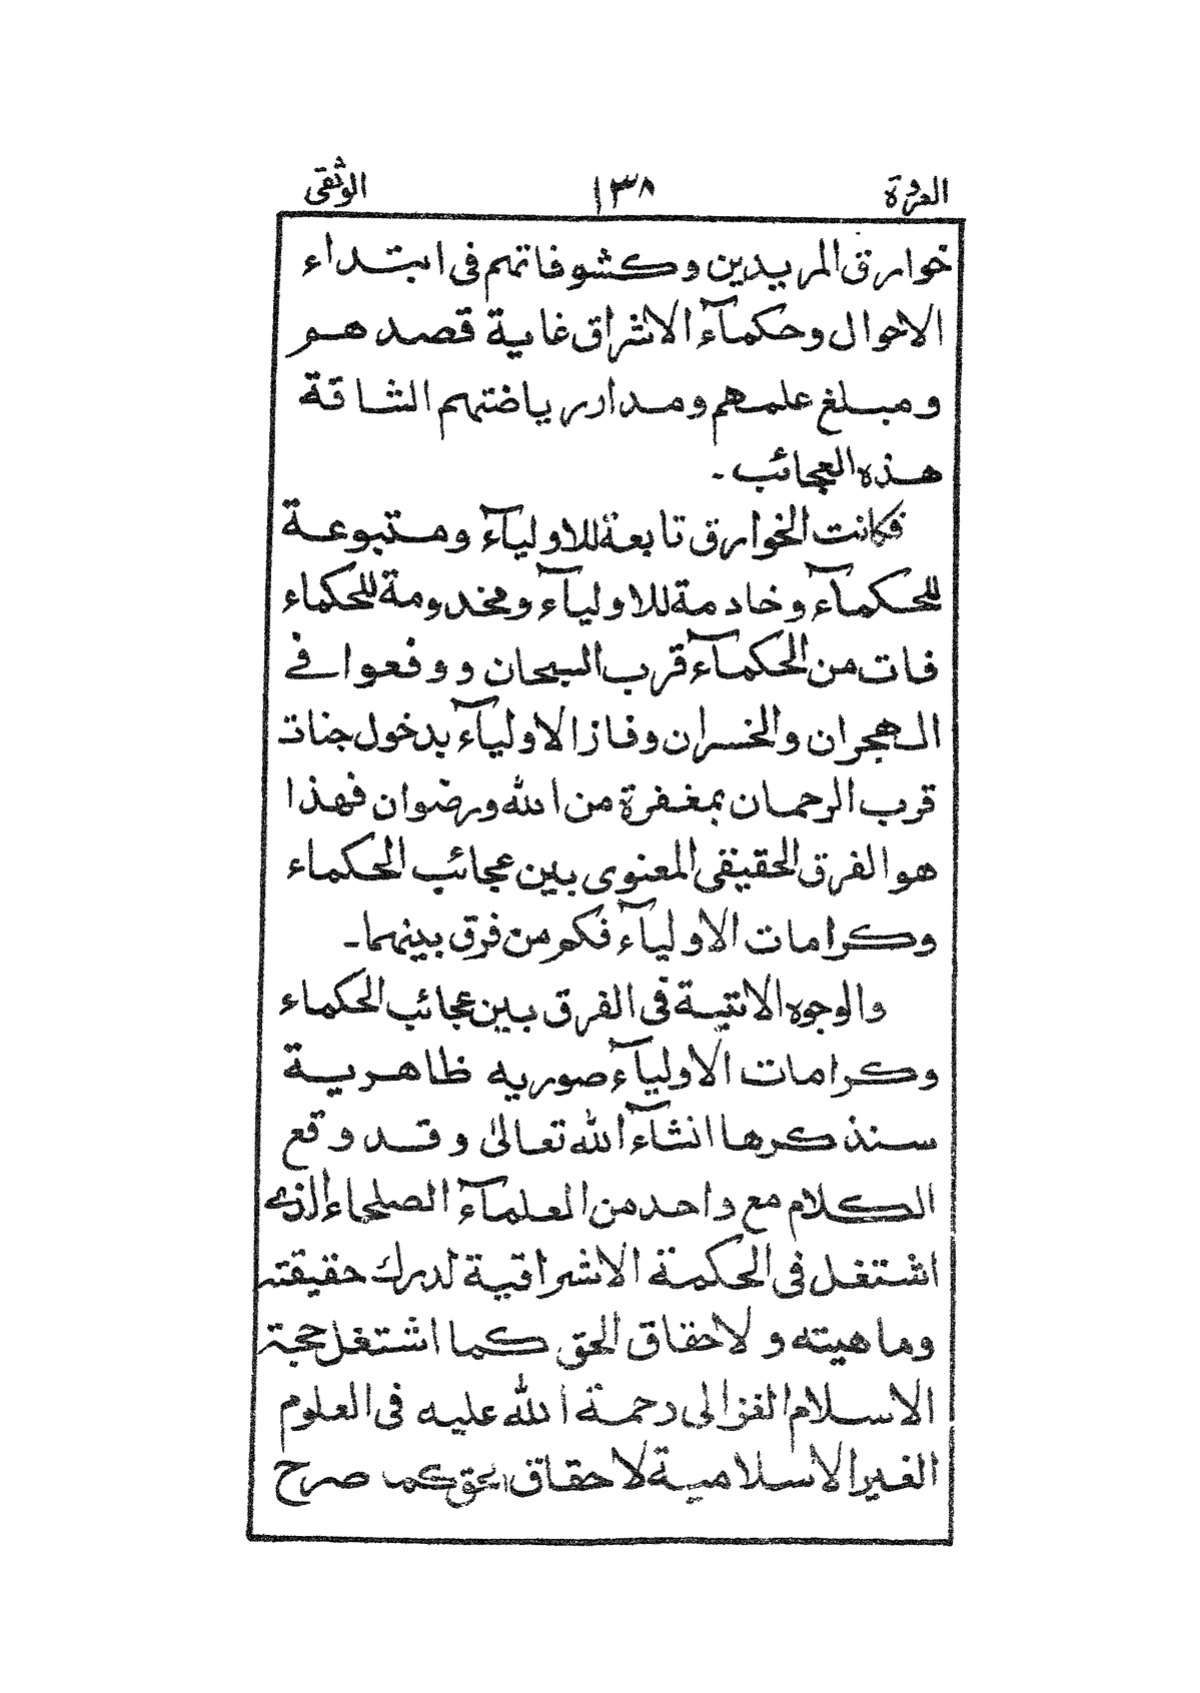 العروة ١٣٨ الوثقى
خوارق المريدين وكشوفاتهم فى ابتداء
الاحوال وحكمآء الاشراق غاية قصدهم
ومبلغ علمهم ومدار رياضتهم الشاقة
هذه العجائب ۔
فكانت الخوارق تابعة للاوليآء ومتبوعة
للحكمآء وخادمة للاوليآء ومخدومة للحكماء
فات من الحكمآء قرب السبحان ووقعوا فى
الهجران والخسران وفاز الاوليآء بدخول جنات
قرب الرحمان بمغفرة من الله ورضوان فهذا
هو الفرق الحقيقى المعنوى بين عجائب الحكماء
وكرامات الاوليآء فكم من فرق بينهما۔
والوجوه الاتية فى الفرق بين عجائب الحكماء
وكرامات الاوليآء صوريه ظاهرية
سنذكرها انشآء الله تعالىٰ وقد وقع
الكلام مع واحد من العلمآء الصلحاء الذى
اشتغل فى الحكمة الاشراقية لدرك حقيقته
وماهيته و لاحقاق الحق كما اشتغل حجة
الاسلام الغزالى رحمة الله عليه فى العلوم
الغير الاسلامية لاحقاق الحق كما صرح